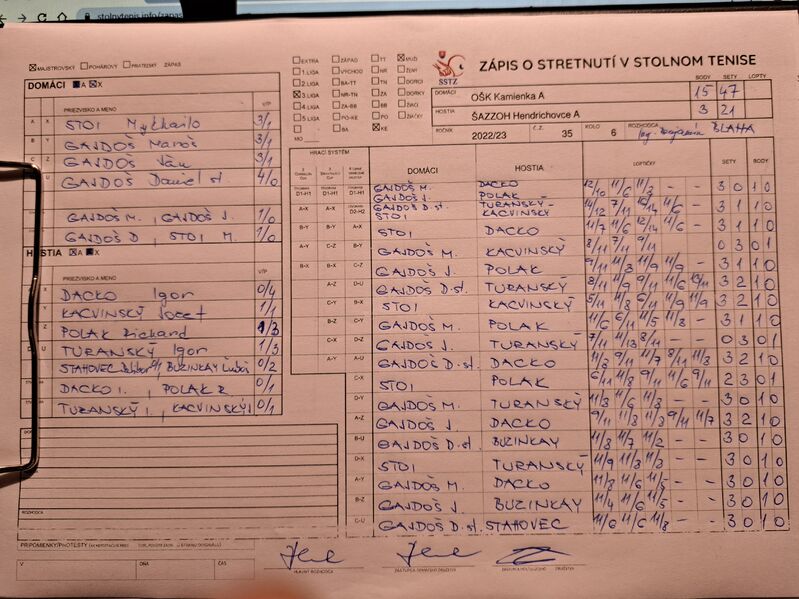 stolnytenis.info/zapas
MAJSTROVSKÝ POHÁROVÝ PRIATEĽSKÝ ZÁPAS
DOMÁCI A X
PRIEZVISKO A MENO V/P
A X STOI Mykhailo 3/1
B Y GAJDOŠ Maroš 3/1
C Z GAJDOŠ Ján 3/1
U GAJDOŠ Daniel st. 4/0
GAJDOŠ M., GAJDOŠ J. 1/0
GAJDOŠ D, STOI M. 1/0
HOSTIA A X
PRIEZVISKO A MENO V/P
X DACKO Igor 0/4
Y KACVINSKÝ Jozef 1/1
Z POLAK Richard 1/3
U TURANSKÝ Igor 1/3
STAHOVEC 0/1 BUZINKAY Ľuboš 0/2
DACKO I., POLAK R. 0/1
TURANSKÝ I., KACVINSKÝ J 0/1
ROZHODCA
PRIPOMIENKY/PROTESTY
V DŇA ČAS
EXTRA ZÁPAD TT MUŽI
1. LIGA VÝCHOD NR ŽENY
2. LIGA BA-TT TN DORCI
3. LIGA NR-TN ZA DORKY
4. LIGA ZA-BB BB ŽIACI
5. LIGA PO-KE PO ŽIAČKY
BA KE
MO
SSTZ
ZÁPIS O STRETNUTÍ V STOLNOM TENISE
BODY SETY LOPTY
DOMÁCI OŠK Kamienka A 15 47
HOSTIA ŠAZZOH Hendrichovce A 3 21
ROČNÍK 2022/23 Č. Z. 35 KOLO 6 ROZHODCA Ing. Benjamín BLAHA
HRACÍ SYSTÉM DOMÁCI HOSTIA LOPTIČKY SETY BODY
D1-H1 D1-H1 GAJDOŠ M. GAJDOŠ J. DACKO POLAK 12/10 11/6 11/3 - - 3 0 1 0
A-X A-X D2-H2 GAJDOŠ D. st. STOI TURANSKÝ - KACVINSKÝ 14/12 7/11 16/14 11/6 - 3 1 1 0
B-Y B-Y A-X STOI DACKO 11/7 11/6 12/14 11/6 - 3 1 1 0
A-Y C-Z B-Y GAJDOŠ M. KACVINSKÝ 8/11 7/11 9/11 - - 0 3 0 1
B-X B-X C-Z GAJDOŠ J. POLAK 9/11 11/3 11/9 11/9 - 3 1 1 0
A-Z D-U GAJDOŠ D. st. TURANSKÝ 8/11 11/9 9/11 11/6 13/11 3 2 1 0
C-Y B-X STOI KACVINSKÝ 5/11 11/8 6/11 11/9 11/9 3 2 1 0
B-Z C-Y GAJDOŠ M. POLAK 11/6 6/11 11/5 11/8 - 3 1 1 0
C-X D-Z GAJDOŠ J. TURANSKÝ 7/11 11/13 8/11 - - 0 3 0 1
A-Y A-U GAJDOŠ D. st. DACKO 11/3 9/11 11/7 8/11 11/3 3 2 1 0
C-X STOI POLAK 6/11 11/8 9/11 11/6 9/11 2 3 0 1
D-Y GAJDOŠ M. TURANSKÝ 11/8 11/6 11/9 - - 3 0 1 0
A-Z GAJDOŠ J. DACKO 9/11 11/8 11/3 9/11 11/7 3 2 1 0
B-U GAJDOŠ D. st. BUZINKAY 11/8 11/7 11/2 - - 3 0 1 0
D-X STOI TURANSKÝ 11/9 11/3 11/3 - - 3 0 1 0
A-Y GAJDOŠ M. DACKO 11/8 11/6 11/5 - - 3 0 1 0
B-Z GAJDOŠ J. BUZINKAY 11/4 11/6 11/5 - - 3 0 1 0
C-U GAJDOŠ D. st. STAHOVEC 11/6 11/6 11/8 - - 3 0 1 0
HLAVNÝ ROZHODCA